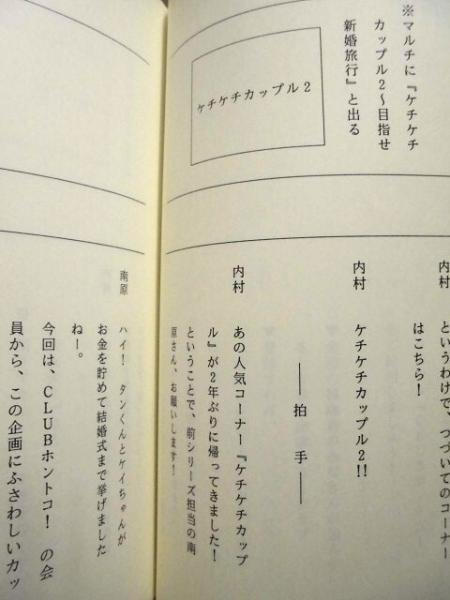 ※マルチに『ケチケチ
カップル２〜目指せ
新婚旅行』と出る
ケチケチカップル２
内村　というわけで、つづいてのコーナー
はこちら！
内村　ケチケチカップル２!!
――拍　手――
内村　あの人気コーナー『ケチケチカップ
ル』が２年ぶりに帰ってきました！
ということで、前シリーズ担当の南
原さん、お願いします！
南原　ハイ！　タンくんとケイちゃんが
お金を貯めて結婚式まで挙げました
ねー。
今回は、ＣＬＵＢホントコ！　の会
員から、この企画にふさわしいカッ